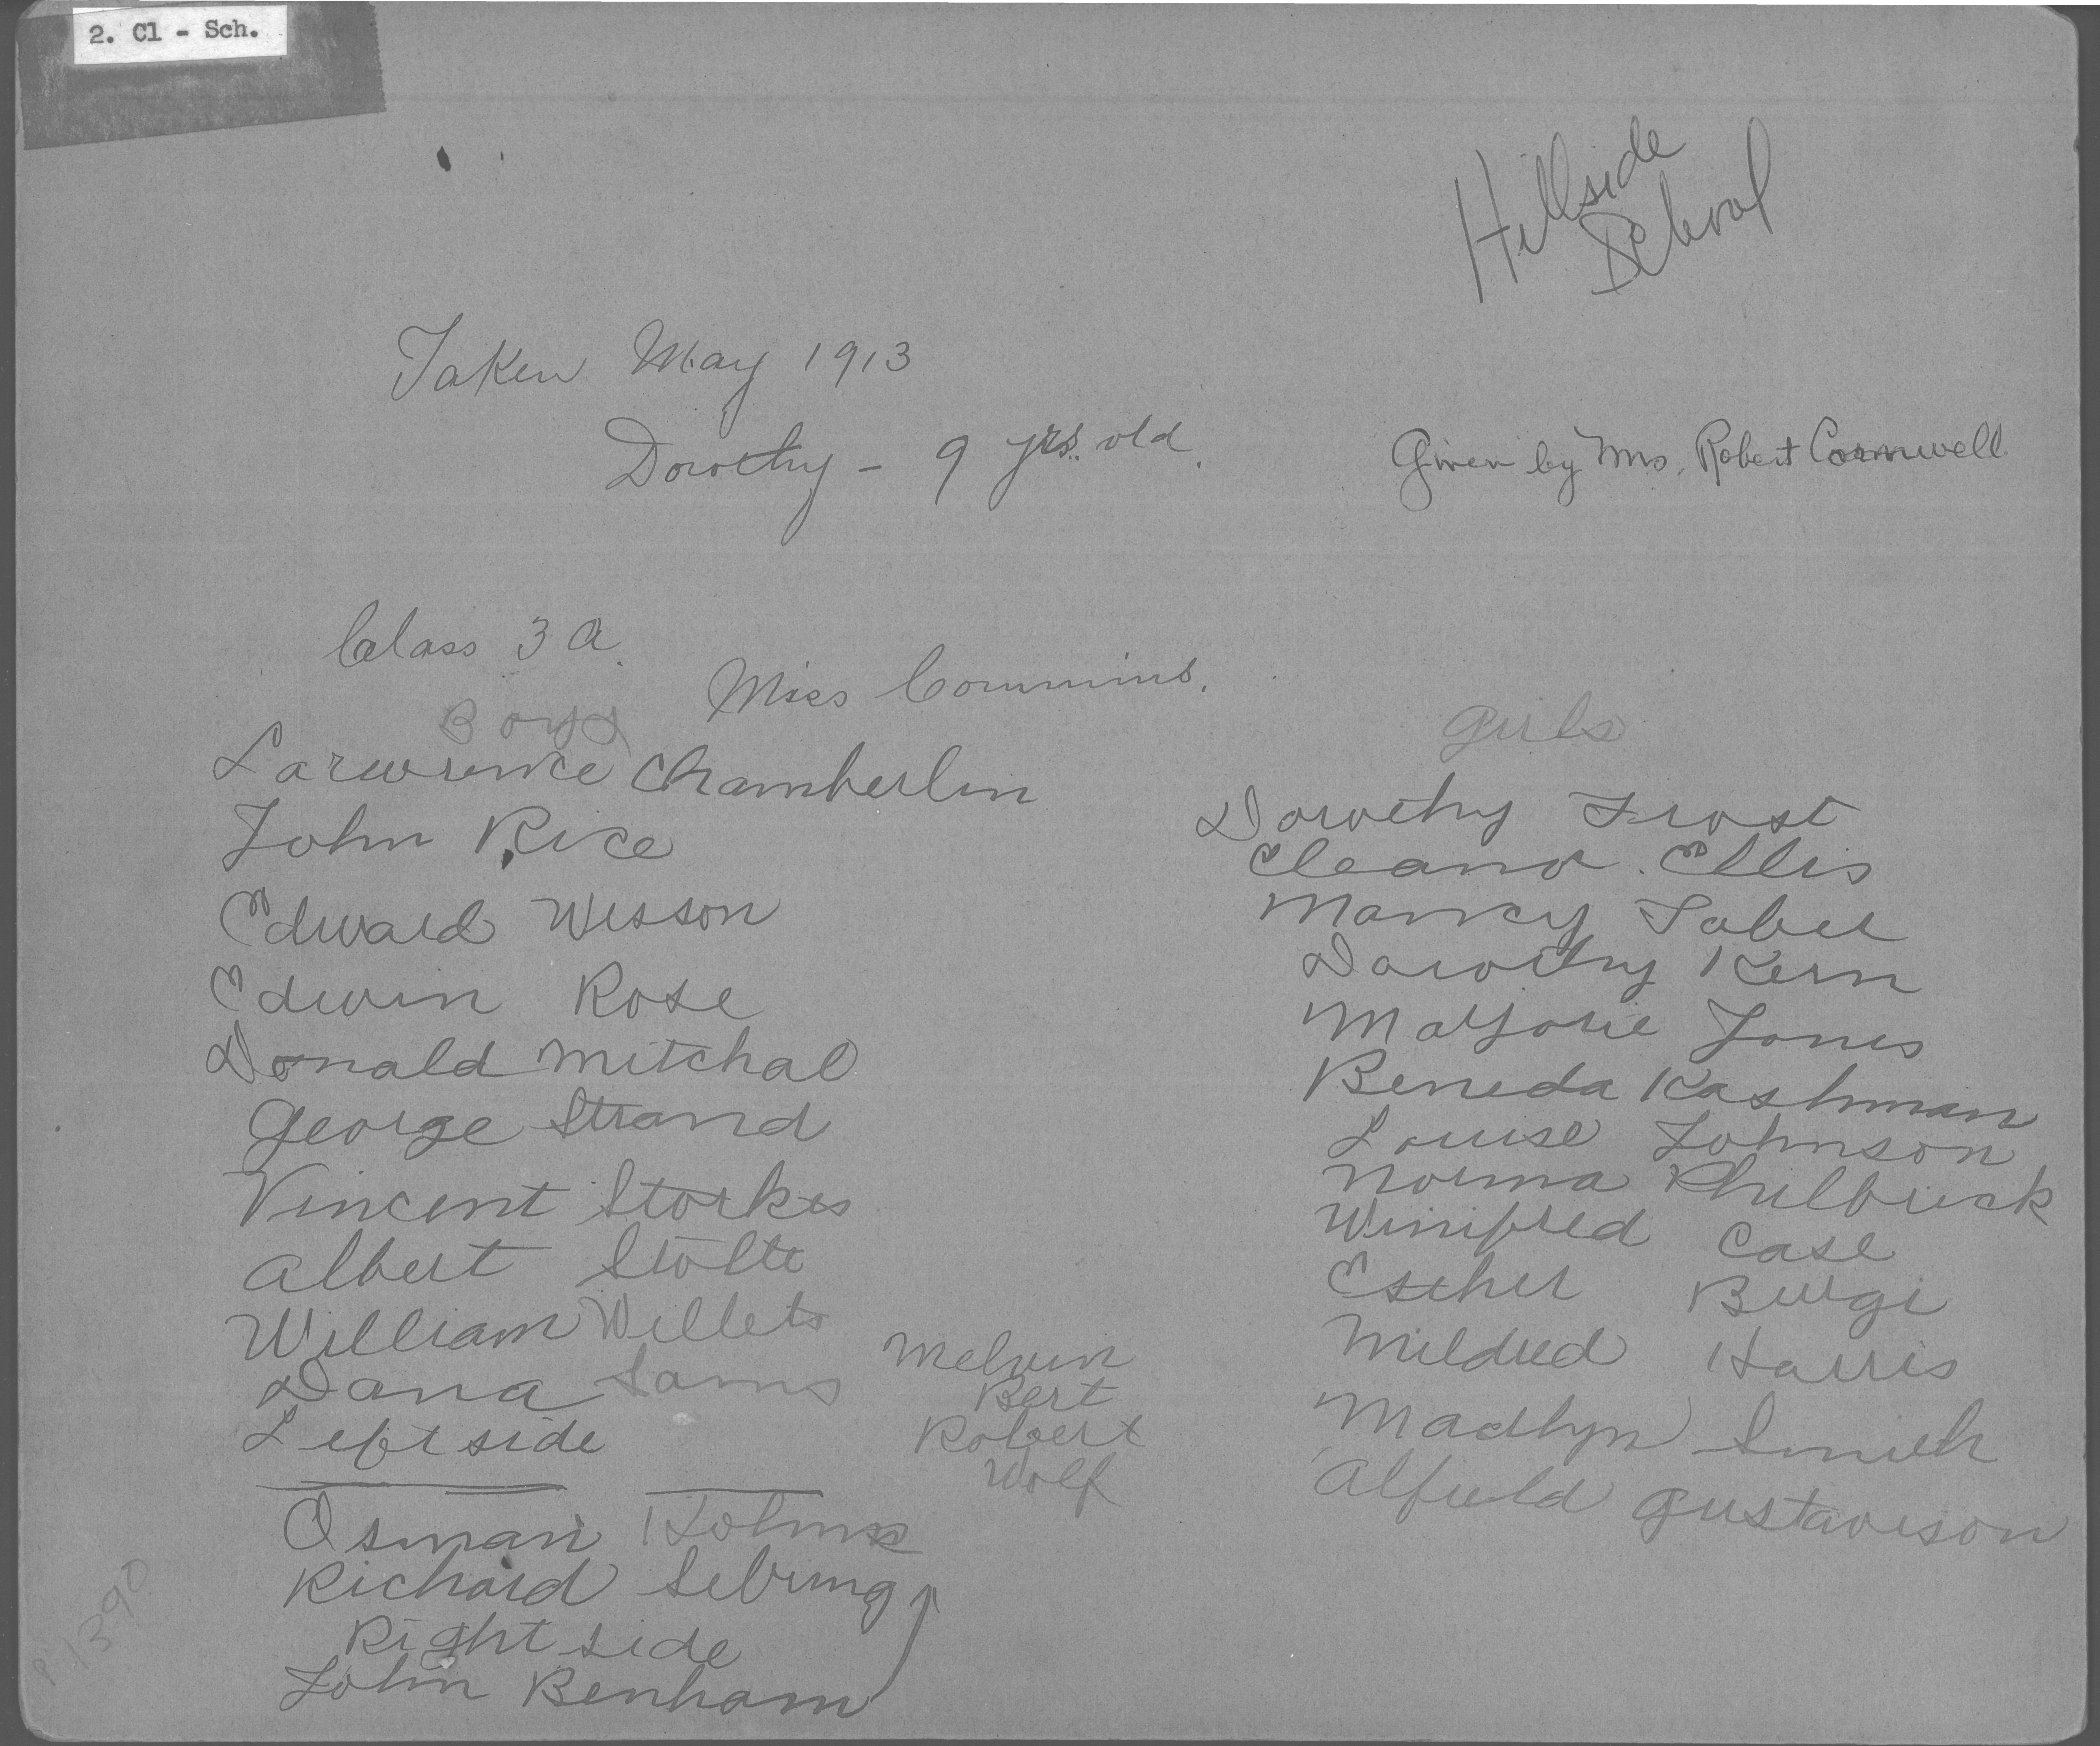 2. Cl - Sch.
Hillside
School
Taken May 1913
Dorothy - 9 yrs. old.
Given by Mrs. Robert Cornwell
Class 3 A.
Miss Commins.
Boys
Larwrence Chamberlin
John Rice
Edward Wesson
Edwin Rose
Donald Mitchal
George Strand
Vincent Storkes
Albert Stolte
William Willets
Dana Sams
Left side
Melvin
Bert
Robert
Wolf
Osman Holms
Richard Sebring
Right side
John Benham
Girls
Dorothy Frost
Eleanor Ellis
Nancy Taber
Dorothy Kern
Marjorie Jones
Beneda Kashman
Louise Johnson
Norma Philbrick
Winifred Case
Esther Burgi
Mildred Harris
Madlyn Smith
Alfield Gustaveson
P 1390